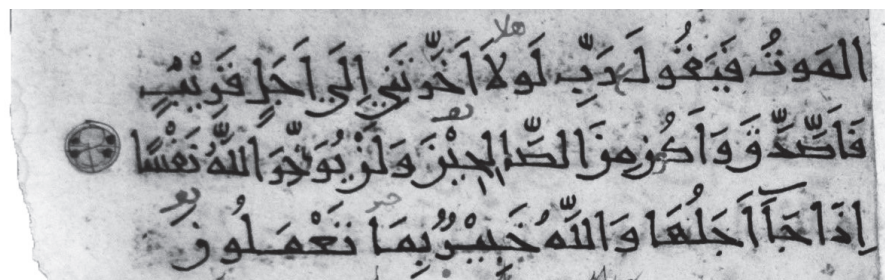 المَوتُ فَيَقُولَ رَبِّ لَولَا اَخَّرتَنِي اِلَى اَجَلٍ قَرِيْبٍ
فَاَصَّدَّقَ وَاَكُن مِنَ الصَّالِحِيْنَ وَلَنْ يُوَخِّرَ اللَّهُ نَفْسًا
اِذَا جَآ اَجَلُهَا وَاللَّهُ خَبِيْرٌ بِمَا تَعْمَلُونَ